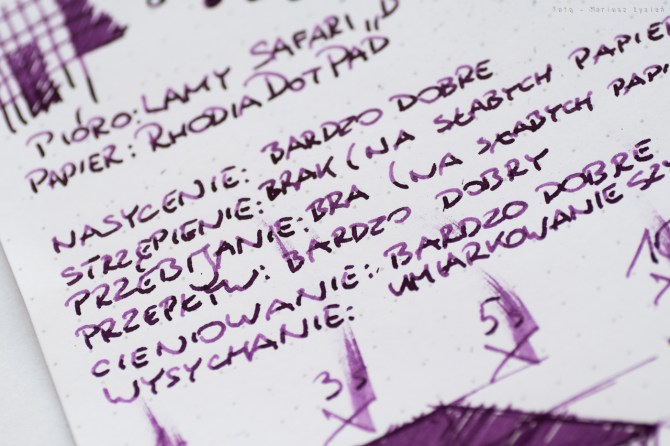 Foto - Mariusz Łysiak
PIÓRO: LAMY SAFARI „D
PAPIER: RHODIA DOTPAD
NASYCENIE: BARDZO DOBRE
STRZĘPIENIE: BRAK (NA SŁABYCH PAPIER
PRZEBIJANIE: BRA (NA SŁABYCH PAPI
PRZEPŁYW: BARDZO DOBRY
CIENIOWANIE: BARDZO DOBRE
WYSYCHANIE: UMIARKOWANIE SZY
3s
5s
10